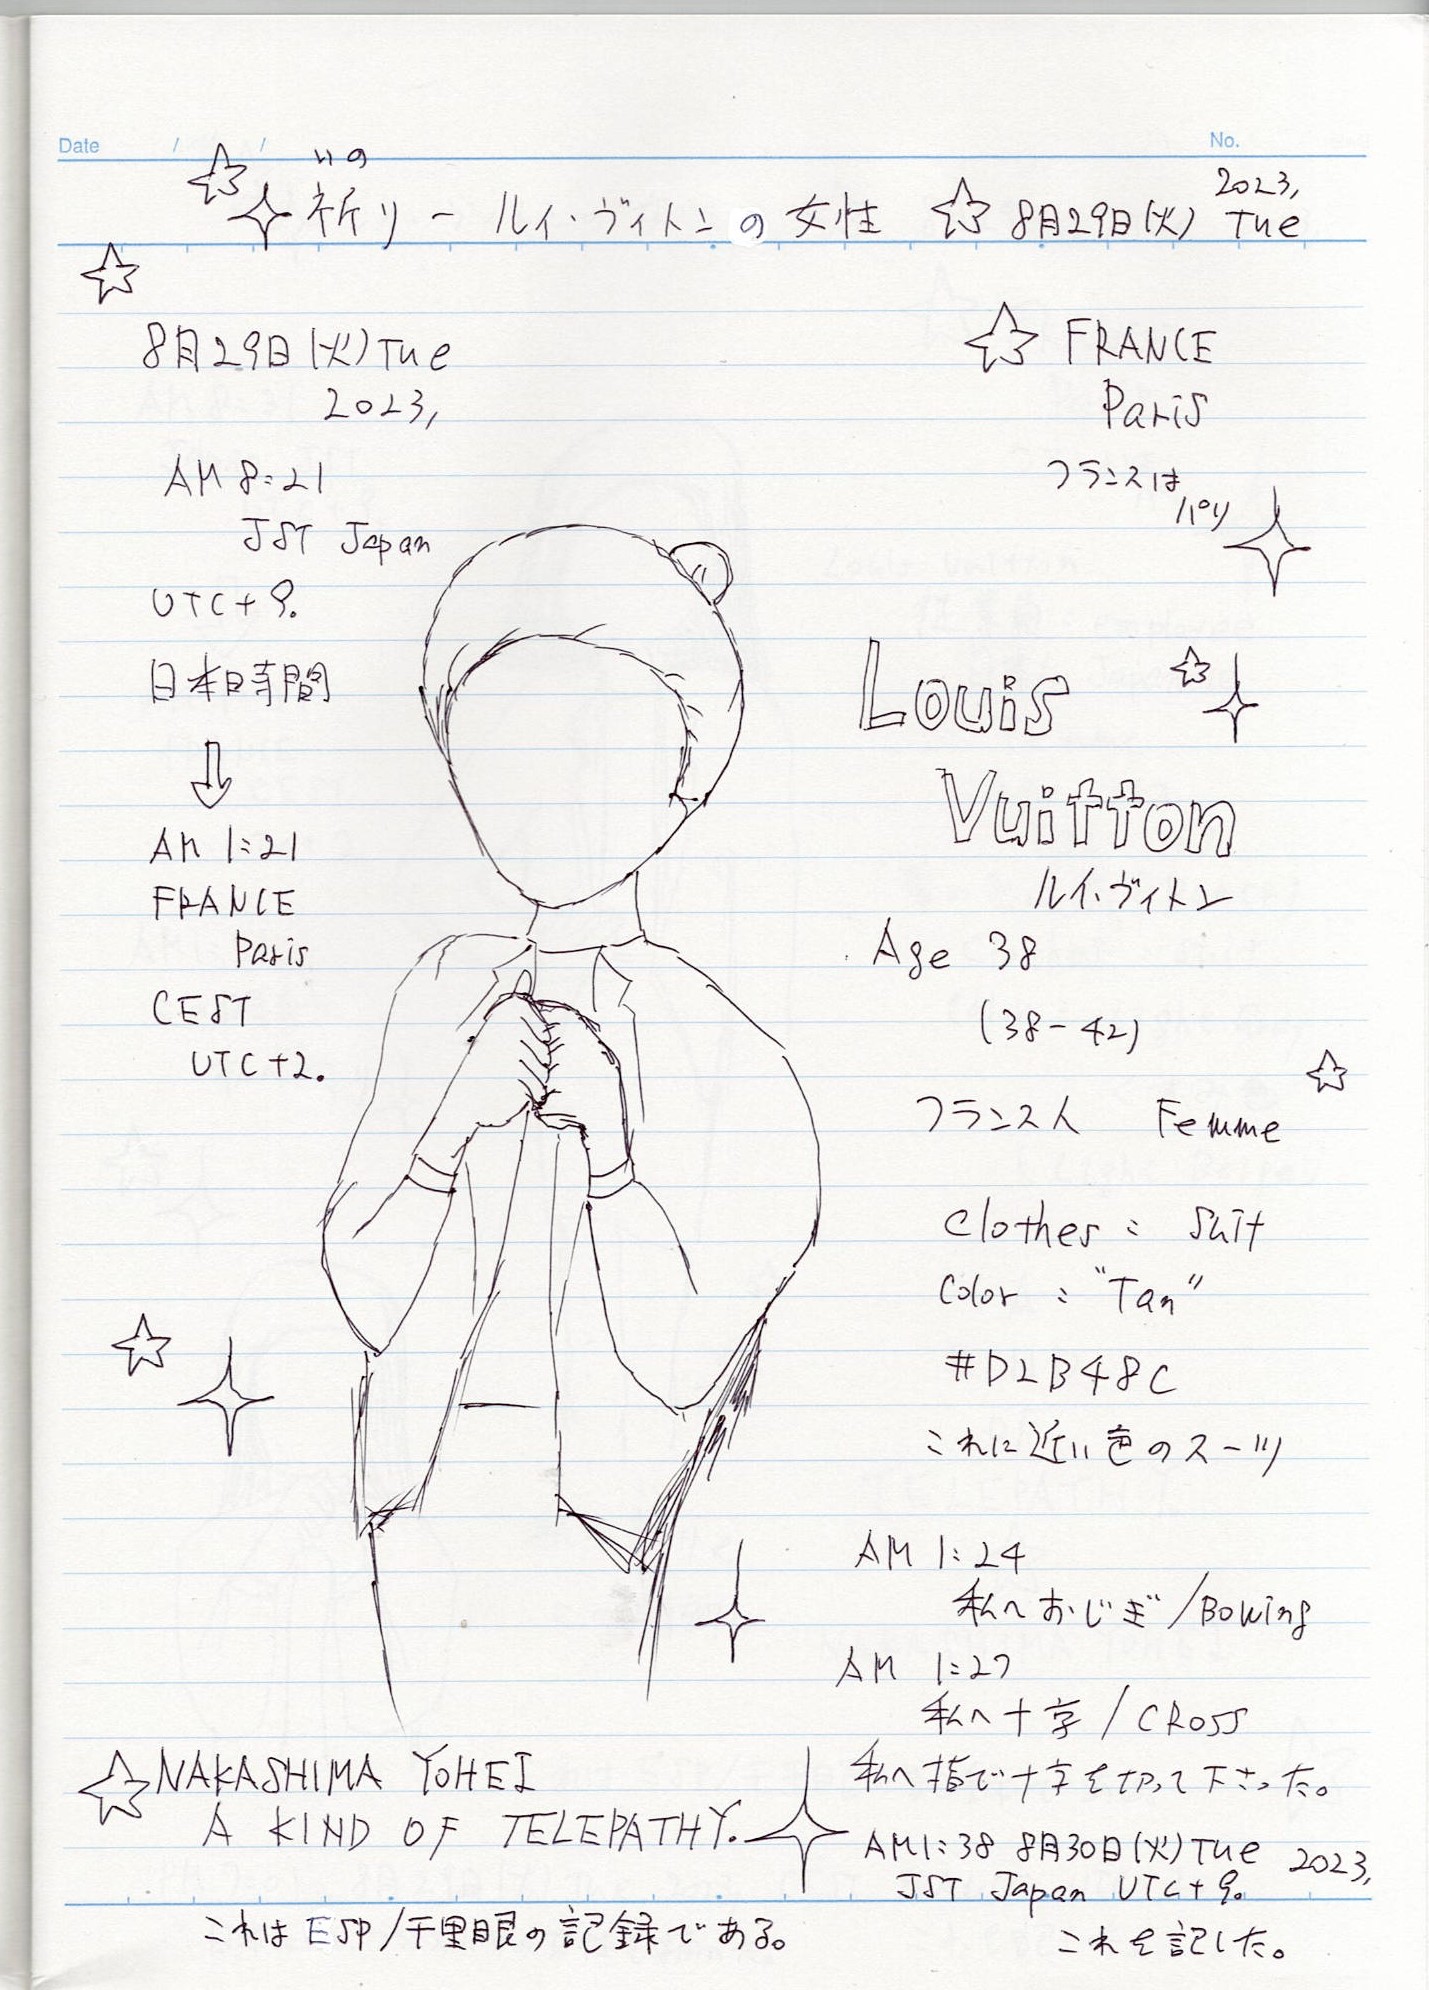 Date / /
No.
いの
祈り - ルイ・ヴィトンの女性 8月29日(火) 2023, Tue
8月29日(火)Tue
2023,
AM 8:21
JST Japan
UTC+9.
日本時間
⇓
AM 1:21
FRANCE
Paris
CEST
UTC+2.
FRANCE
Paris
フランスは
パリ
Louis
Vuitton
ルイ・ヴィトン
Age 38
(38-42)
フランス人 Femme
Clothes: Suit
Color: "Tan"
#D2B48C
これに近い色のスーツ
AM 1:24
私へおじぎ/Bowing
AM 1:27
私へ十字/CROSS
私へ指で十字を切って下さった。
AM1:38 8月30日(火)Tue 2023,
JST Japan UTC+9.
これを記した。
NAKASHIMA YOHEI
A KIND OF TELEPATHY.
これはESP/千里眼の記録である。